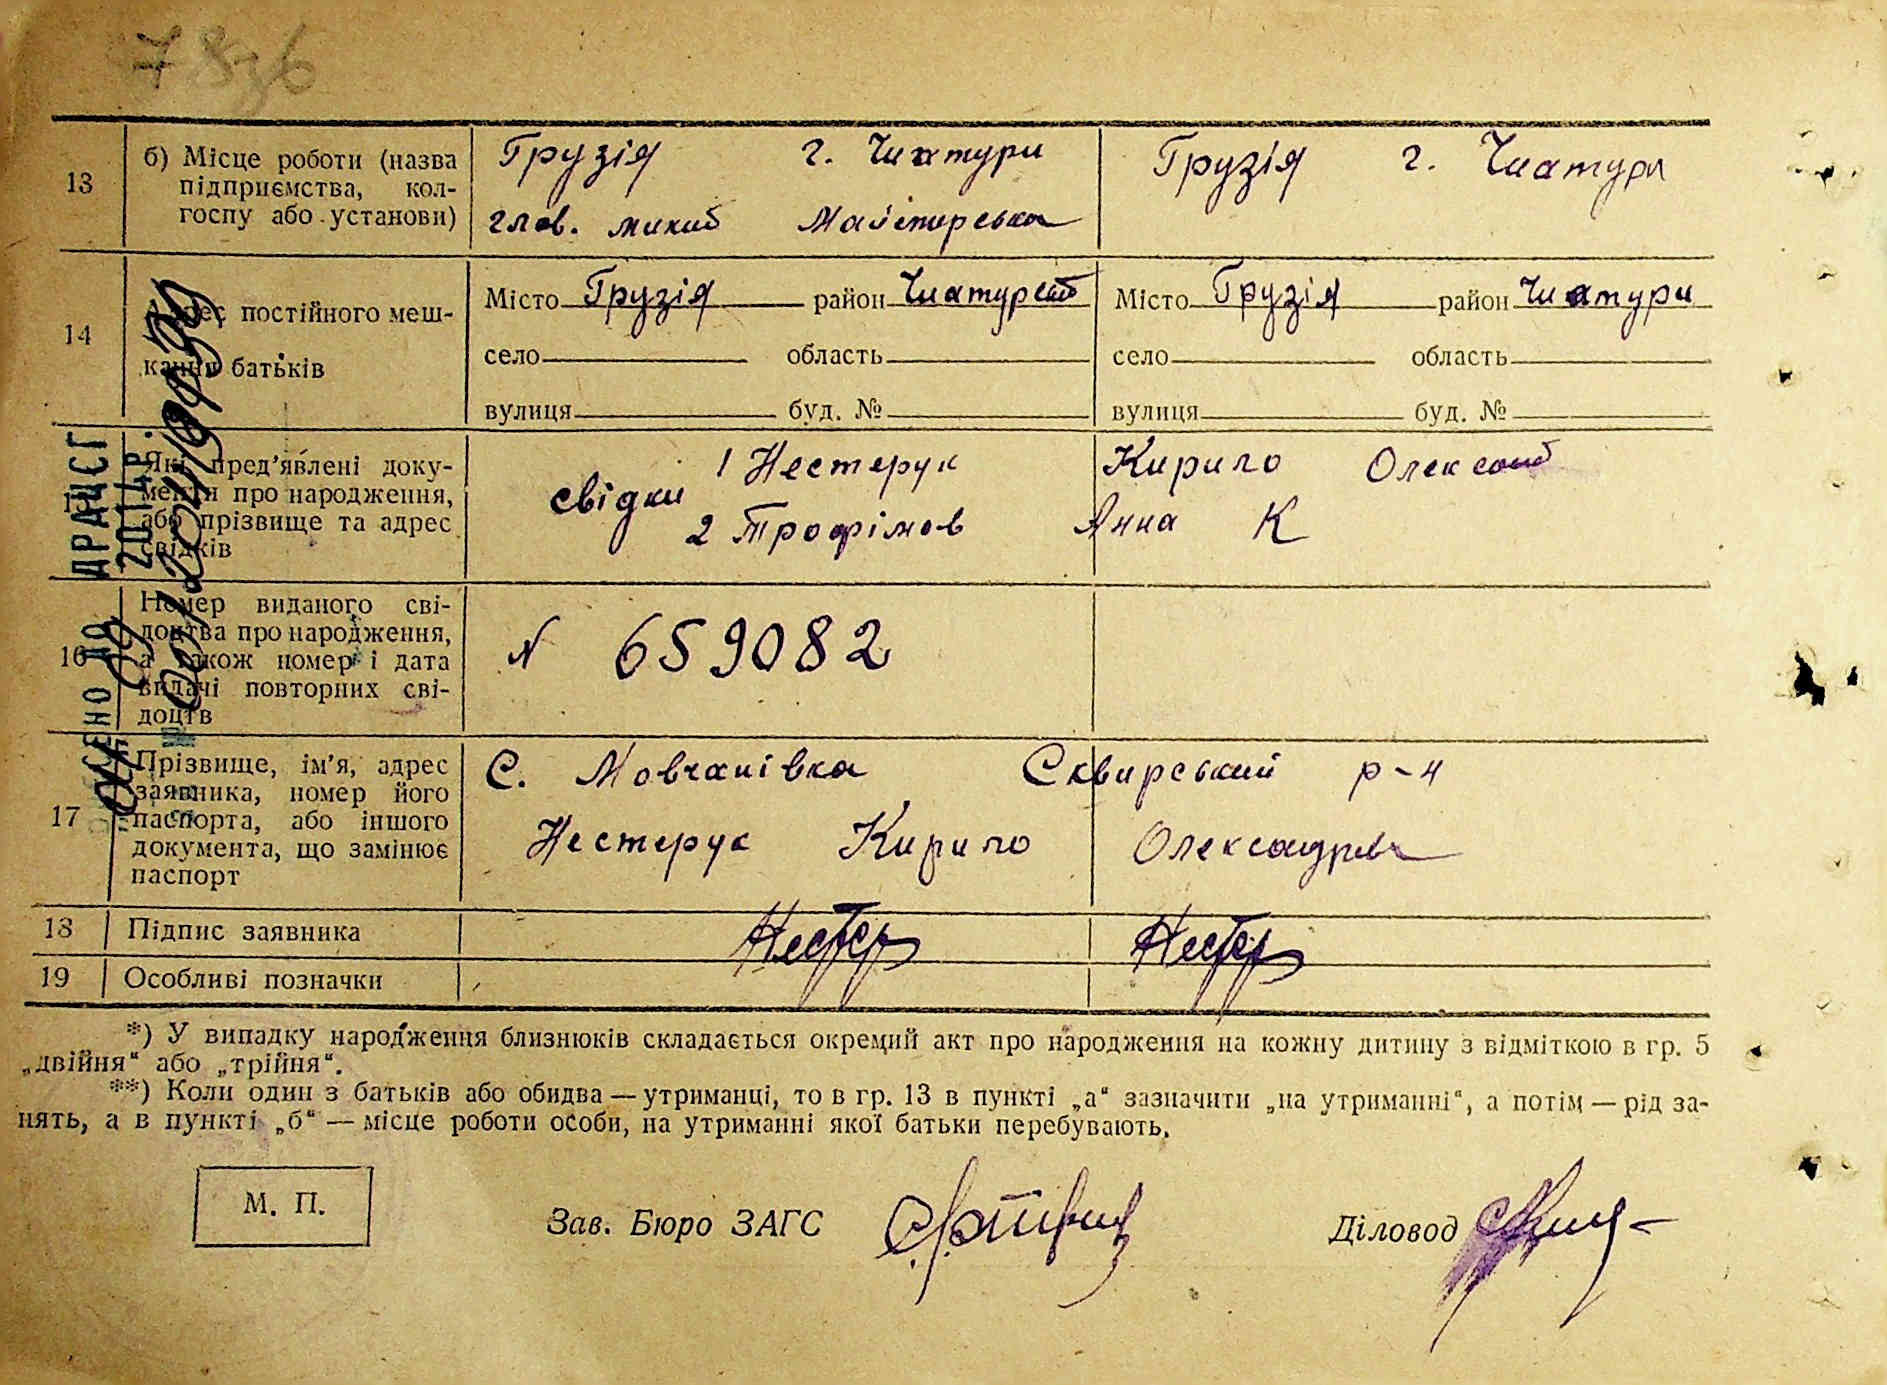 13
б) Місце роботи (назва
підприємства, кол-
госпу або установи)
Грузія г. Чиатури
глав. Майстерська
Грузія г. Чиатури
14
Адрес постійного меш-
кання батьків
Місто Грузія район
село область
вулиця буд. №
Місто Грузія район Чиатури
село область
вулиця буд. №
15
Які пред'явлені доку-
менти про народження,
або прізвище та адрес
свідків
свідки 1 Нестерук Кирило
2 Трофімов Анна К
16
Номер виданого сві-
доцтва про народження,
а також номер і дата
видачі повторних сві-
доцтв
N 659082
17
Прізвище, ім'я, адрес
заявника, номер його
паспорта, або іншого
документа, що замінює
паспорт
С. Мовчанівка Сквирський р-н
Нестерук Кирило
18
Підпис заявника
Нестер Нестер
19
Особливі позначки
*) У випадку народження близнюків складається окремий акт про народження на кожну дитину з відміткою в гр. 5
„двійня“ або „трійня“.
**) Коли один з батьків або обидва — утриманці, то в гр. 13 в пункті „а“ зазначити „на утриманні“, а потім — рід за-
нять, а в пункті „б“ — місце роботи особи, на утриманні якої батьки перебувають.
М. П.
Зав. Бюро ЗАГС
Діловод
ДРАЦСГ
2014р.